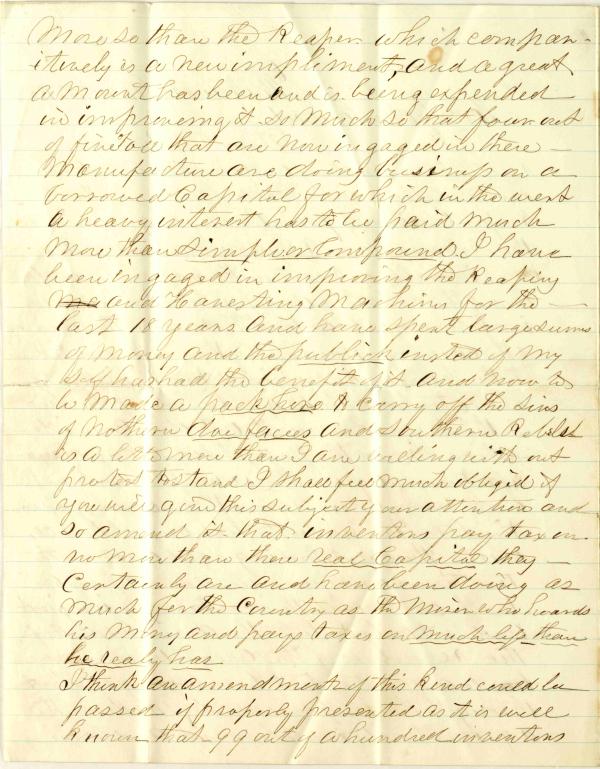 More so than the Reaper which compar-
itively is a new impliment, and a great
a Mount has been and is being expended
in improving it so Much so that four out
of five to a that are Now ingaged in there
Manufacture are doing business on a
borrowed Capital for which in the west
a heavy interest has to be paid Much
More than simple or Compound. I have
been ingaged in improving the Reaping
Ma and Havesting Machines for the
last 18 years and have spent large sums
of Money and the publick insted of My
self has had the benefit of it and Now to
be Made a pack hors to carry off the sins
of Nothern doe faces and Southern Rebels
is a little more than I am willing with out
protest to stand I shall feel much obliged if
you will give this subject your attention and
so amend it that inventors pay tax on
no More than there real Capital they
Certainly are and have been doing as
Much for the Country as the Miser who hoards
his Money and pays taxes on much less than
he realy has
I think an amendment of this kind could be
passed if properly presented as it is well
known that 99 out of a hundred inventors